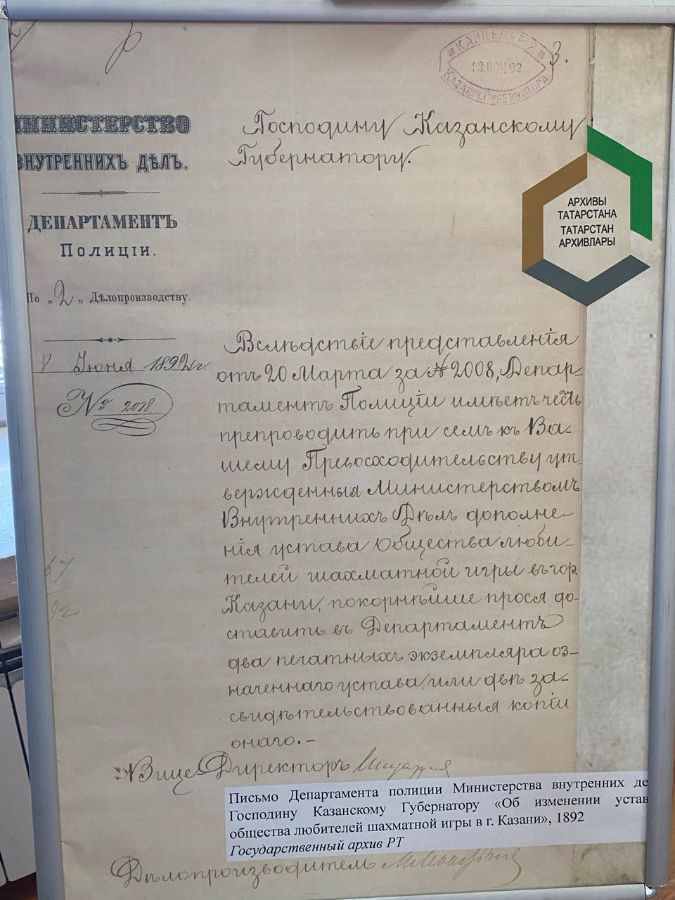 КАНЦЕЛЯРІЯ
КАЗАНСК. ГУБЕРНАТОРА
3.
МИНИСТЕРСТВО
ВНУТРЕННИХЪ ДѢЛ.
ДЕПАРТАМЕНТЪ
Полиціи.
По „2„ Дѣлопроизводству.
Іюня 1892 г.
№ 2018
Господину Казанскому
Губернатору.
АРХИВЫ
ТАТАРСТАНА
ТАТАРСТАН
АРХИВЛАРЫ
Вслѣдствіе представленія
отъ 20 Марта за № 2008, Депар-
таментъ Полиціи имѣетъ честь
препроводить при семъ къ Ва-
шему Превосходительству ут-
вержденныя Министерствомъ
Внутреннихъ Дѣлъ дополне-
нія устава Общества люби-
телей шахматной игры въ гор.
Казани, покорнѣйше прося до-
ставить въ Департаментъ
два печатныхъ экземпляра оз-
наченнаго устава или двѣ за-
свидѣтельствованныя копіи
онаго.–
Вице-Директоръ
Письмо Департамента полиции Министерства внутренних де
Господину Казанскому Губернатору «Об изменении устав
общества любителей шахматной игры в г. Казани», 1892
Государственный архив РТ
Дѣлопроизводитель